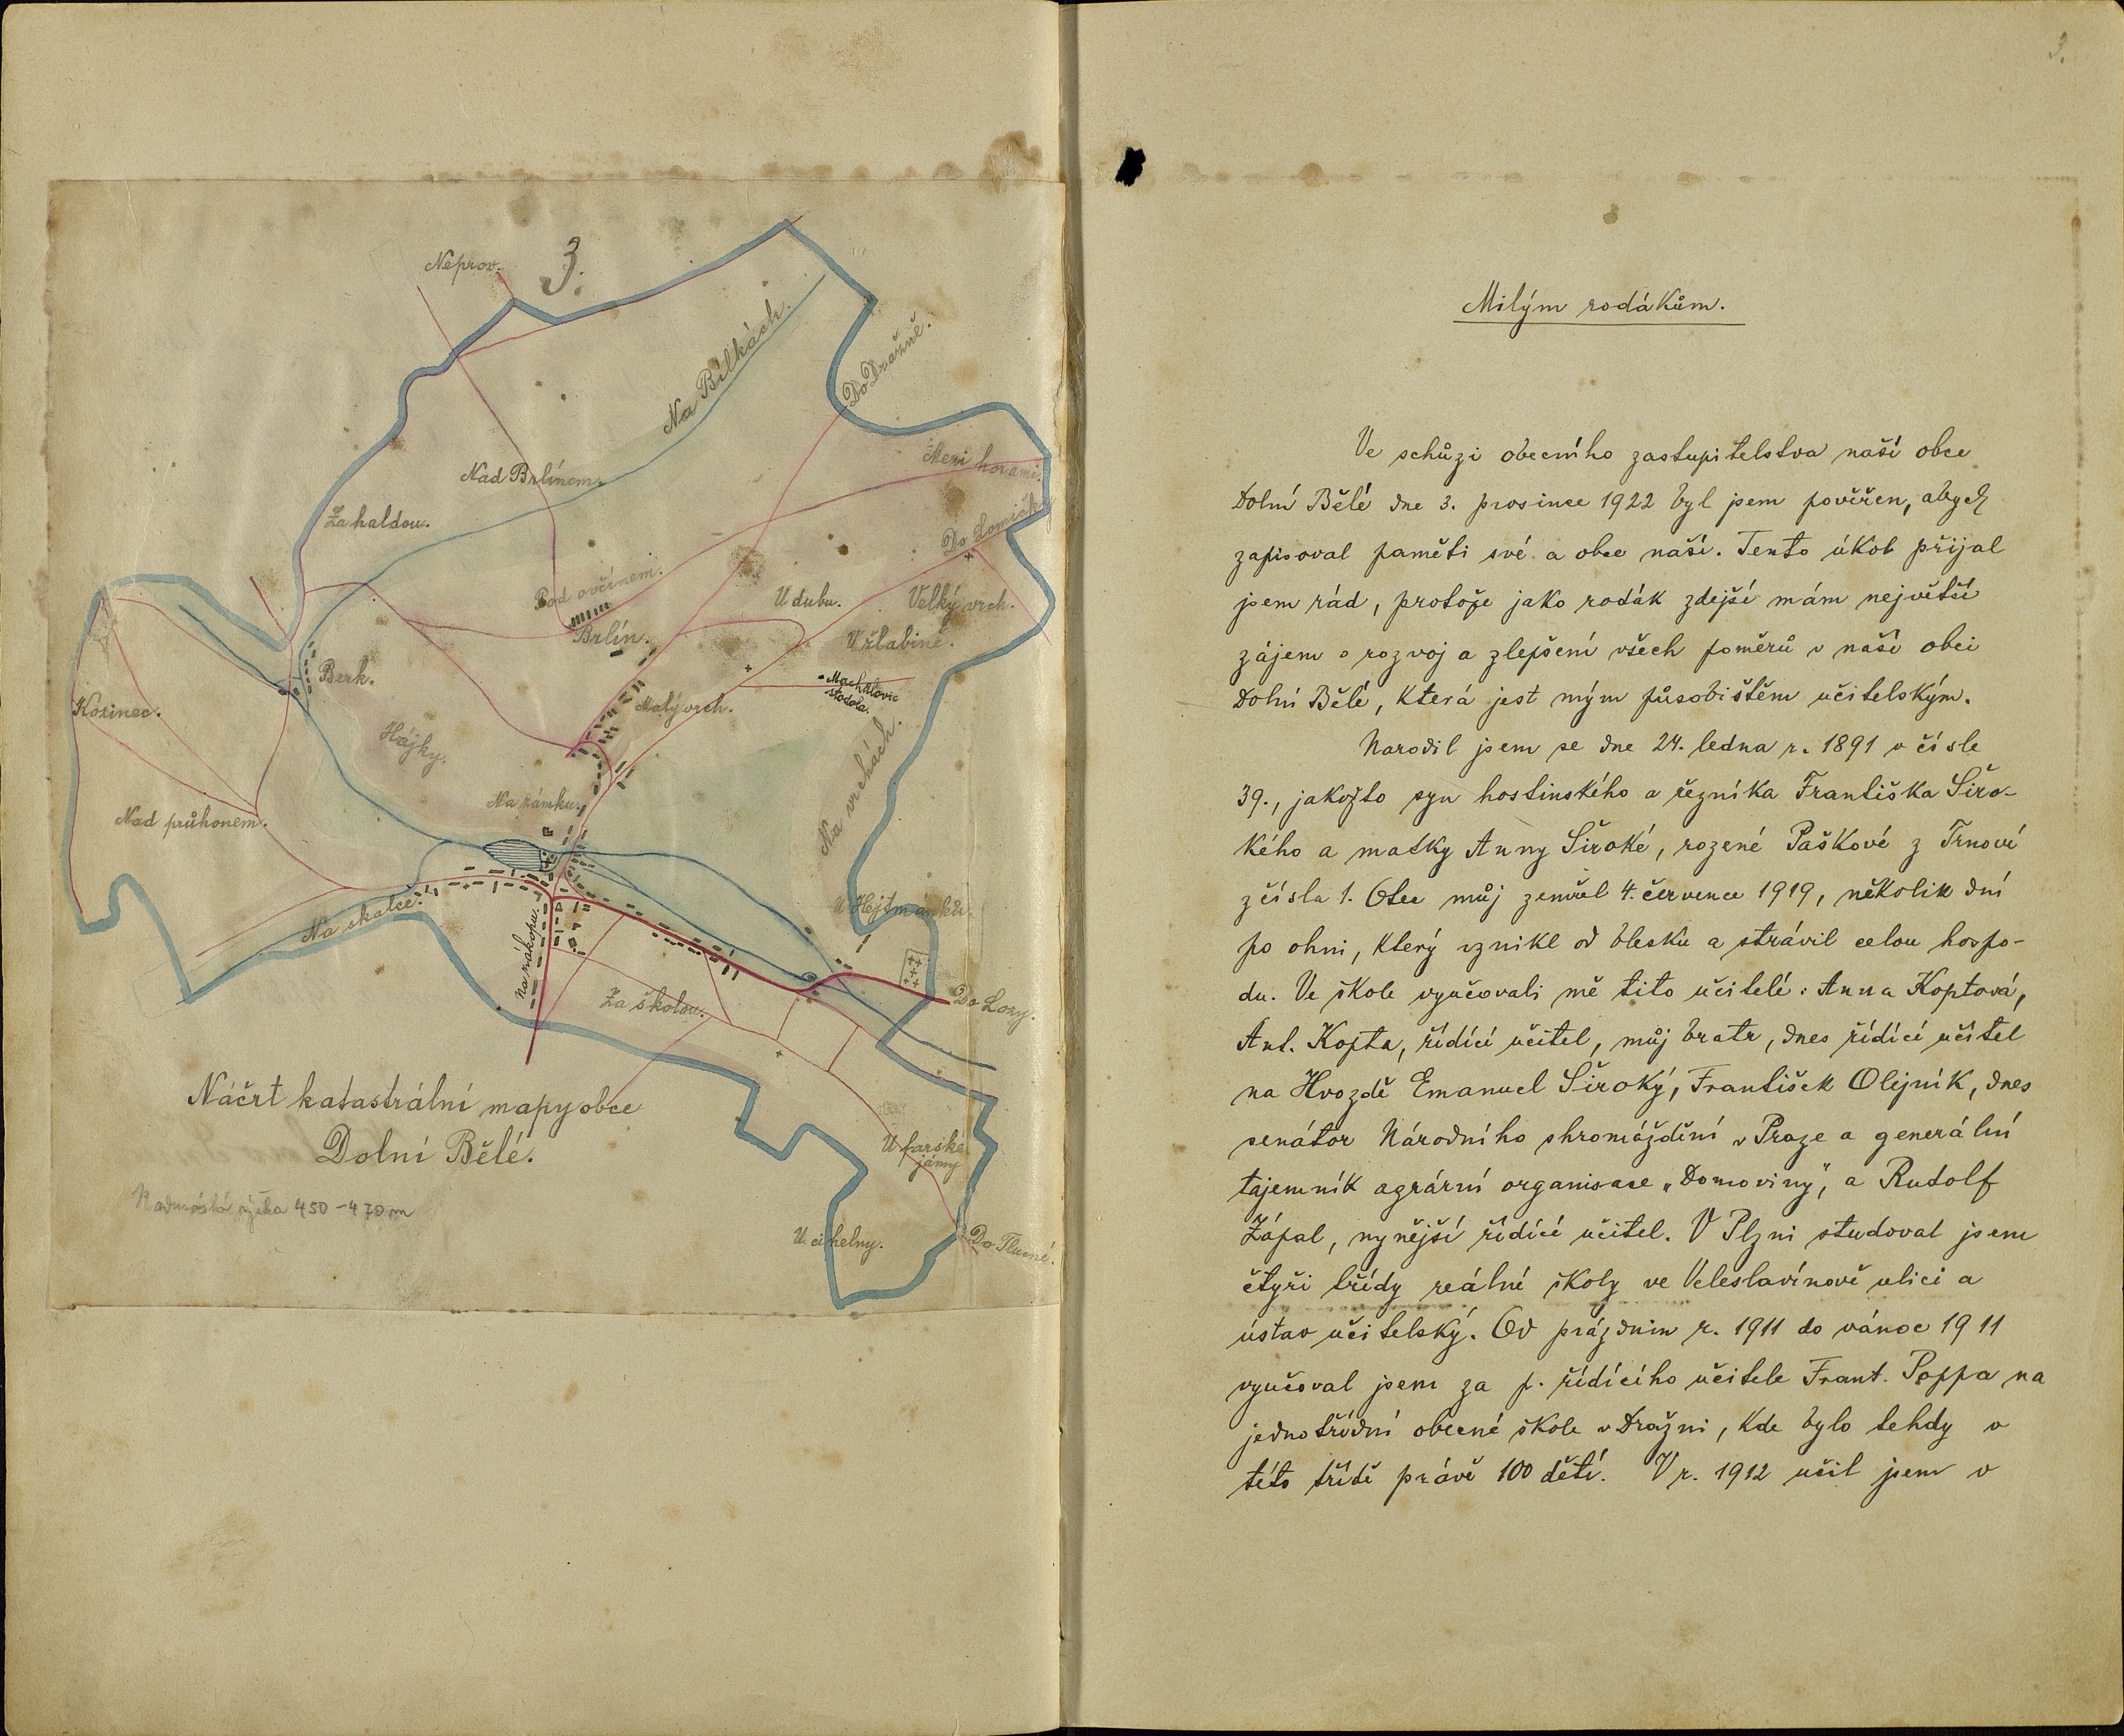 3.
Neprov.
Na Bílkách.
Do Dražně.
Nad Brlínem.
Mezi horami.
Za haldou.
Do Lomičk
Pod ovčínem.
U dubu.
Velký vrch.
Brlín.
V žlabině.
Berk.
Machálovic
stodola.
Kozinec.
Malý vrch.
Hájky.
Na vrchách.
Na zámku.
Nad průhonem.
U Hejtmánků.
Na skalce.
Na zákopu.
Za školou.
Do Lozy.
Náčrt katastrální mapy obce
Dolní Bělé.
U farské
jámy
Nadmořská výška 450-470 m
U cihelny.
Do Tlucné.
3.
Milým rodákům.
Ve schůzi obecního zastupitelstva naší obce
Dolní Bělé dne 3. prosince 1922 byl jsem pověřen, abych
zapisoval paměti své a obce naší. Tento úkol přijal
jsem rád, protože jako rodák zdejší mám největší
zájem o rozvoj a zlepšení všech poměrů v naší obci
Dolní Bělé, která jest mým působištěm učitelským.
Narodil jsem se dne 24. ledna r. 1891 v čísle
39., jakožto syn hostinského a řezníka Františka Širo-
kého a matky Anny Široké, rozené Paškové z Trnové
z čísla 1. Otec můj zemřel 4. července 1919, několik dní
po ohni, který vznikl od blesku a strávil celou hospo-
du. Ve škole vyučovali mě tito učitelé: Anna Koptová,
Ant. Kopta, řídící učitel, můj bratr, dnes řídící učitel
na Hvozdě Emanuel Široký, František Olejník, dnes
senátor Národního shromáždění v Praze a generální
tajemník agrární organisace „Domoviny", a Rudolf
Zápal, nynější řídící učitel. V Plzni studoval jsem
čtyři třídy reálné školy ve Veleslavínově ulici a
ústav učitelský. Od prázdnin r. 1911 do vánoc 1911
vyučoval jsem za p. řídícího učitele Frant. Poppa na
jednotřídní obecné škole v Dražni, kde bylo tehdy v
této třídě právě 100 dětí. V r. 1912 učil jsem v